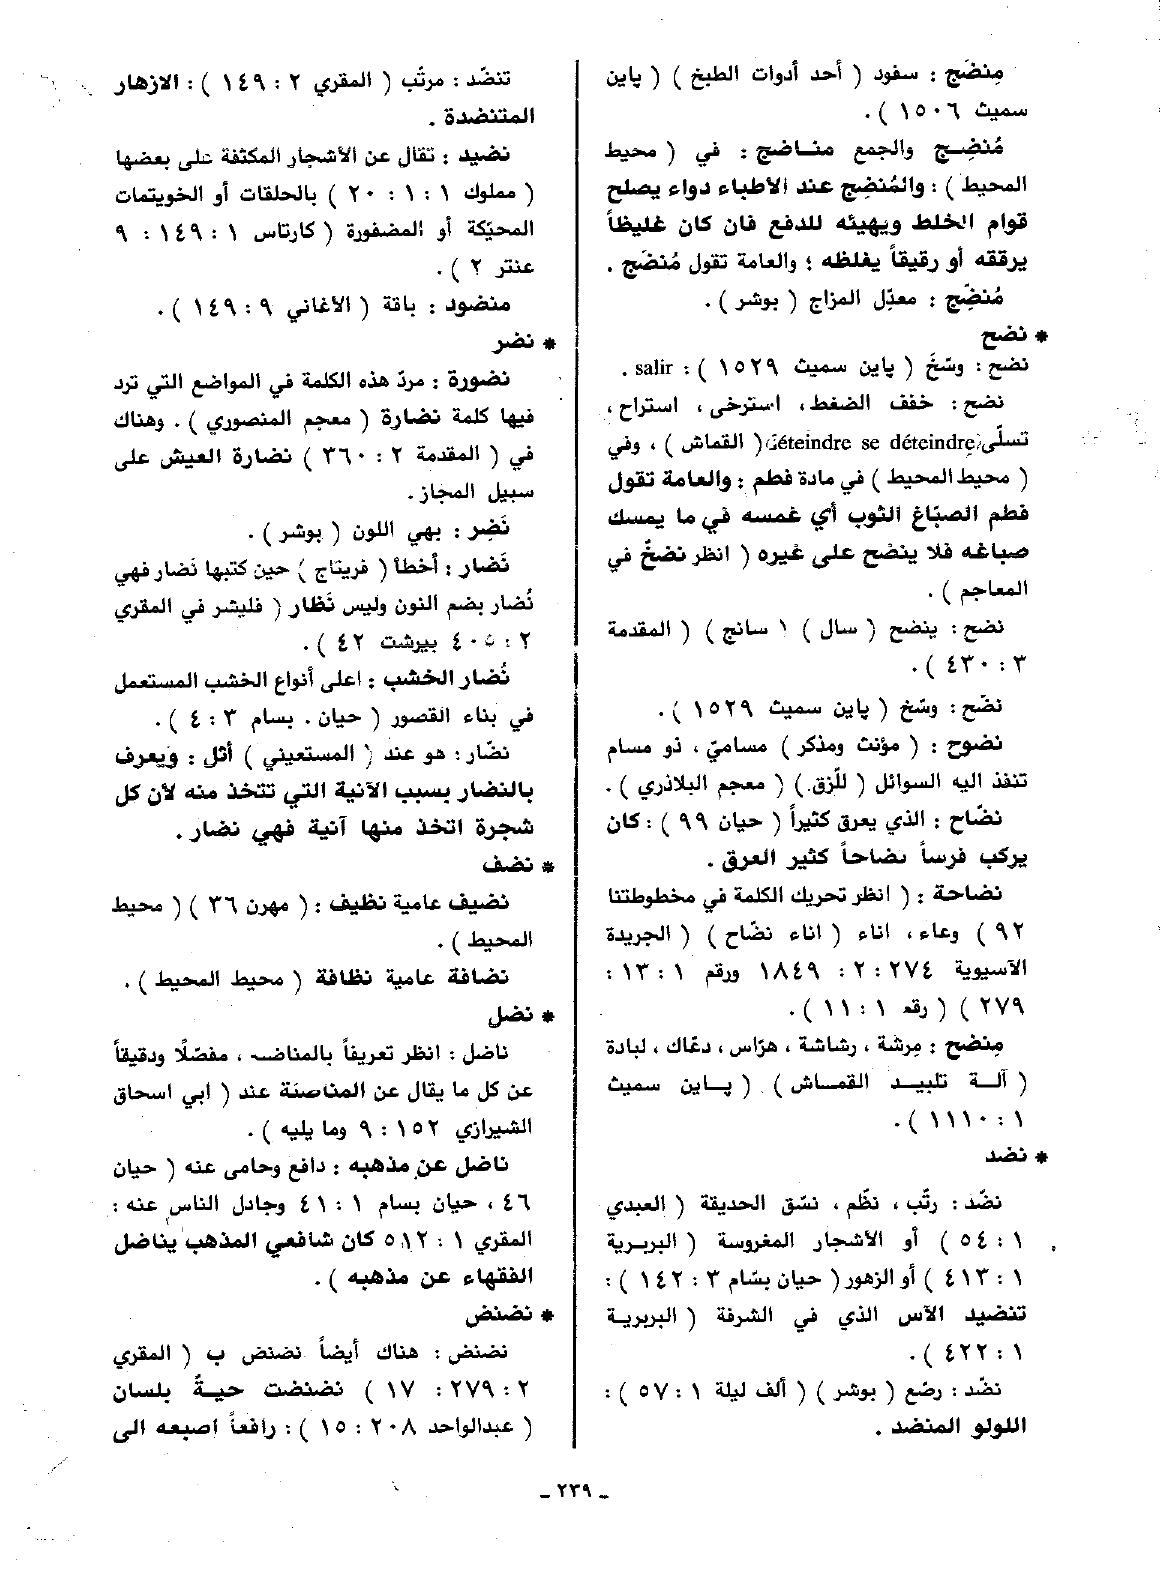 مِنضَج : سفود ( أحد أدوات الطبخ ) ( پاين
سميث ١٥٠٦ ).
مُنضِج والجمع مناضج : في ( محيط
المحيط ) : والمُنضِج عند الأطباء دواء يصلح
قوام الخلط ويهيئه للدفع فان كان غليظاً
يرققه أو رقيقاً يغلظه ؛ والعامة تقول مُنضَج .
مُنضَّج : معدّل المزاج ( بوشر ).
* نضح
نضح : وسَّخَ ( پاين سميث ١٥٢٩ ) : salir .
نضح : خفف الضغط ، استرخى ، استراح ،
تسلّى (déteindre se déteindre) ( القماش ) ، وفي
( محيط المحيط ) في مادة فطم : والعامة تقول
فطم الصبّاغ الثوب أي غمسه في ما يمسك
صباغه فلا ينضح على غيره ( انظر نضحٌ في
المعاجم ) .
نضح : ينضح ( سال ) ١ سانح ) ( المقدمة
٣ : ٤٣٠ ).
نضّح : وسّخ ( پاين سميث ١٥٢٩ ).
نضوح : ( مؤنث ومذكر ) مسامي ، ذو مسام
تنفذ اليه السوائل ( للّزق ) ( معجم البلاذري ) .
نضّاح : الذي يعرق كثيراً ( حيان ٩٩ ) : كان
يركب فرساً نضاحاً كثير العرق .
نضاحة : ( انظر تحريك الكلمة في مخطوطتنا
٩٢ ) وعاء ، اناء ( اناء نضّاح ) ( الجريدة
الآسيوية ٢٧٤ : ٢ : ١٨٤٩ ورقم ١ : ١٣ :
٢٧٩ ) ( رقه ١ : ١١ ).
مِنضح : مِرشة ، رشاشة ، هرّاس ، دعّاك ، لبادة
( آلة تلبيد القماش ) ( پاين سميث
١ : ١١١٠ ).
* نضد
نضّد : رتّب ، نظّم ، نسّق الحديقة ( العبدي
١ : ٥٤ ) أو الأشجار المغروسة ( البربرية
١ : ٤١٣ ) أو الزهور ( حيان بسّام ٣ : ١٤٢ ) :
تنضيد الآس الذي في الشرفة ( البربرية
١ : ٤٢٢ ).
نضّد : رصّع ( بوشر ) ( ألف ليلة ١ : ٥٧ ) :
اللولو المنضد .
تنضّد : مرتّب ( المقري ٢ : ١٤٩ ) : الازهار
المتنضدة .
نضيد : تقال عن الأشجار المكثفة على بعضها
( مملوك ١ : ١ : ٢٠ ) بالحلقات أو الخويتمات
المحبّكة أو المضفورة ( كارتاس ١ : ١٤٩ : ٩
عنتر ٢ ).
منضود : باقة ( الأغاني ٩ : ١٤٩ ).
* نضر
نضورة : مردّ هذه الكلمة في المواضع التي ترد
فيها كلمة نضارة ( معجم المنصوري ) . وهناك
في ( المقدمة ٢ : ٣٦٠ ) نضارة العيش على
سبيل المجاز .
نَضِر : بهي اللون ( بوشر ) .
نَضار : أخطأ ( فريتاج ) حين كتبها نَضار فهي
نُضار بضم النون وليس نَظار ( فليشر في المقري
٢ : ٤٠٥ بيرشت ٤٢ ).
نُضار الخشب : اعلى أنواع الخشب المستعمل
في بناء القصور ( حيان . بسام ٣ : ٤ ).
نضّار : هو عند ( المستعيني ) أثل : ويعرف
بالنضار بسبب الآنية التي تتخذ منه لأن كل
شجرة اتخذ منها آنية فهي نضار .
* نضف
نضيف عامية نظيف : ( مهرن ٣٦ ) ( محيط
المحيط ) .
نضافة عامية نظافة ( محيط المحيط ) .
* نضل
ناضل : انظر تعريفاً بالمناضـ ، مفصّلًا ودقيقاً
عن كل ما يقال عن المناصنة عند ( ابي اسحاق
الشيرازي ١٥٢ : ٩ وما يليه ) .
ناضل عن مذهبه : دافع وحامى عنه ( حيان
٤٦ ، حيان بسام ١ : ٤١ وجادل الناس عنه :
المقري ١ : ٥١٢ كان شافعي المذهب يناضل
الفقهاء عن مذهبه ) .
* نضنض
نضنض : هناك أيضاً نضنض ب ( المقري
٢ : ٢٧٩ : ١٧ ) نضنضت حيةٌ بلسان
( عبدالواحد ٢٠٨ : ١٥ ) : رافعاً اصبعه الى
- ٢٣٩ -